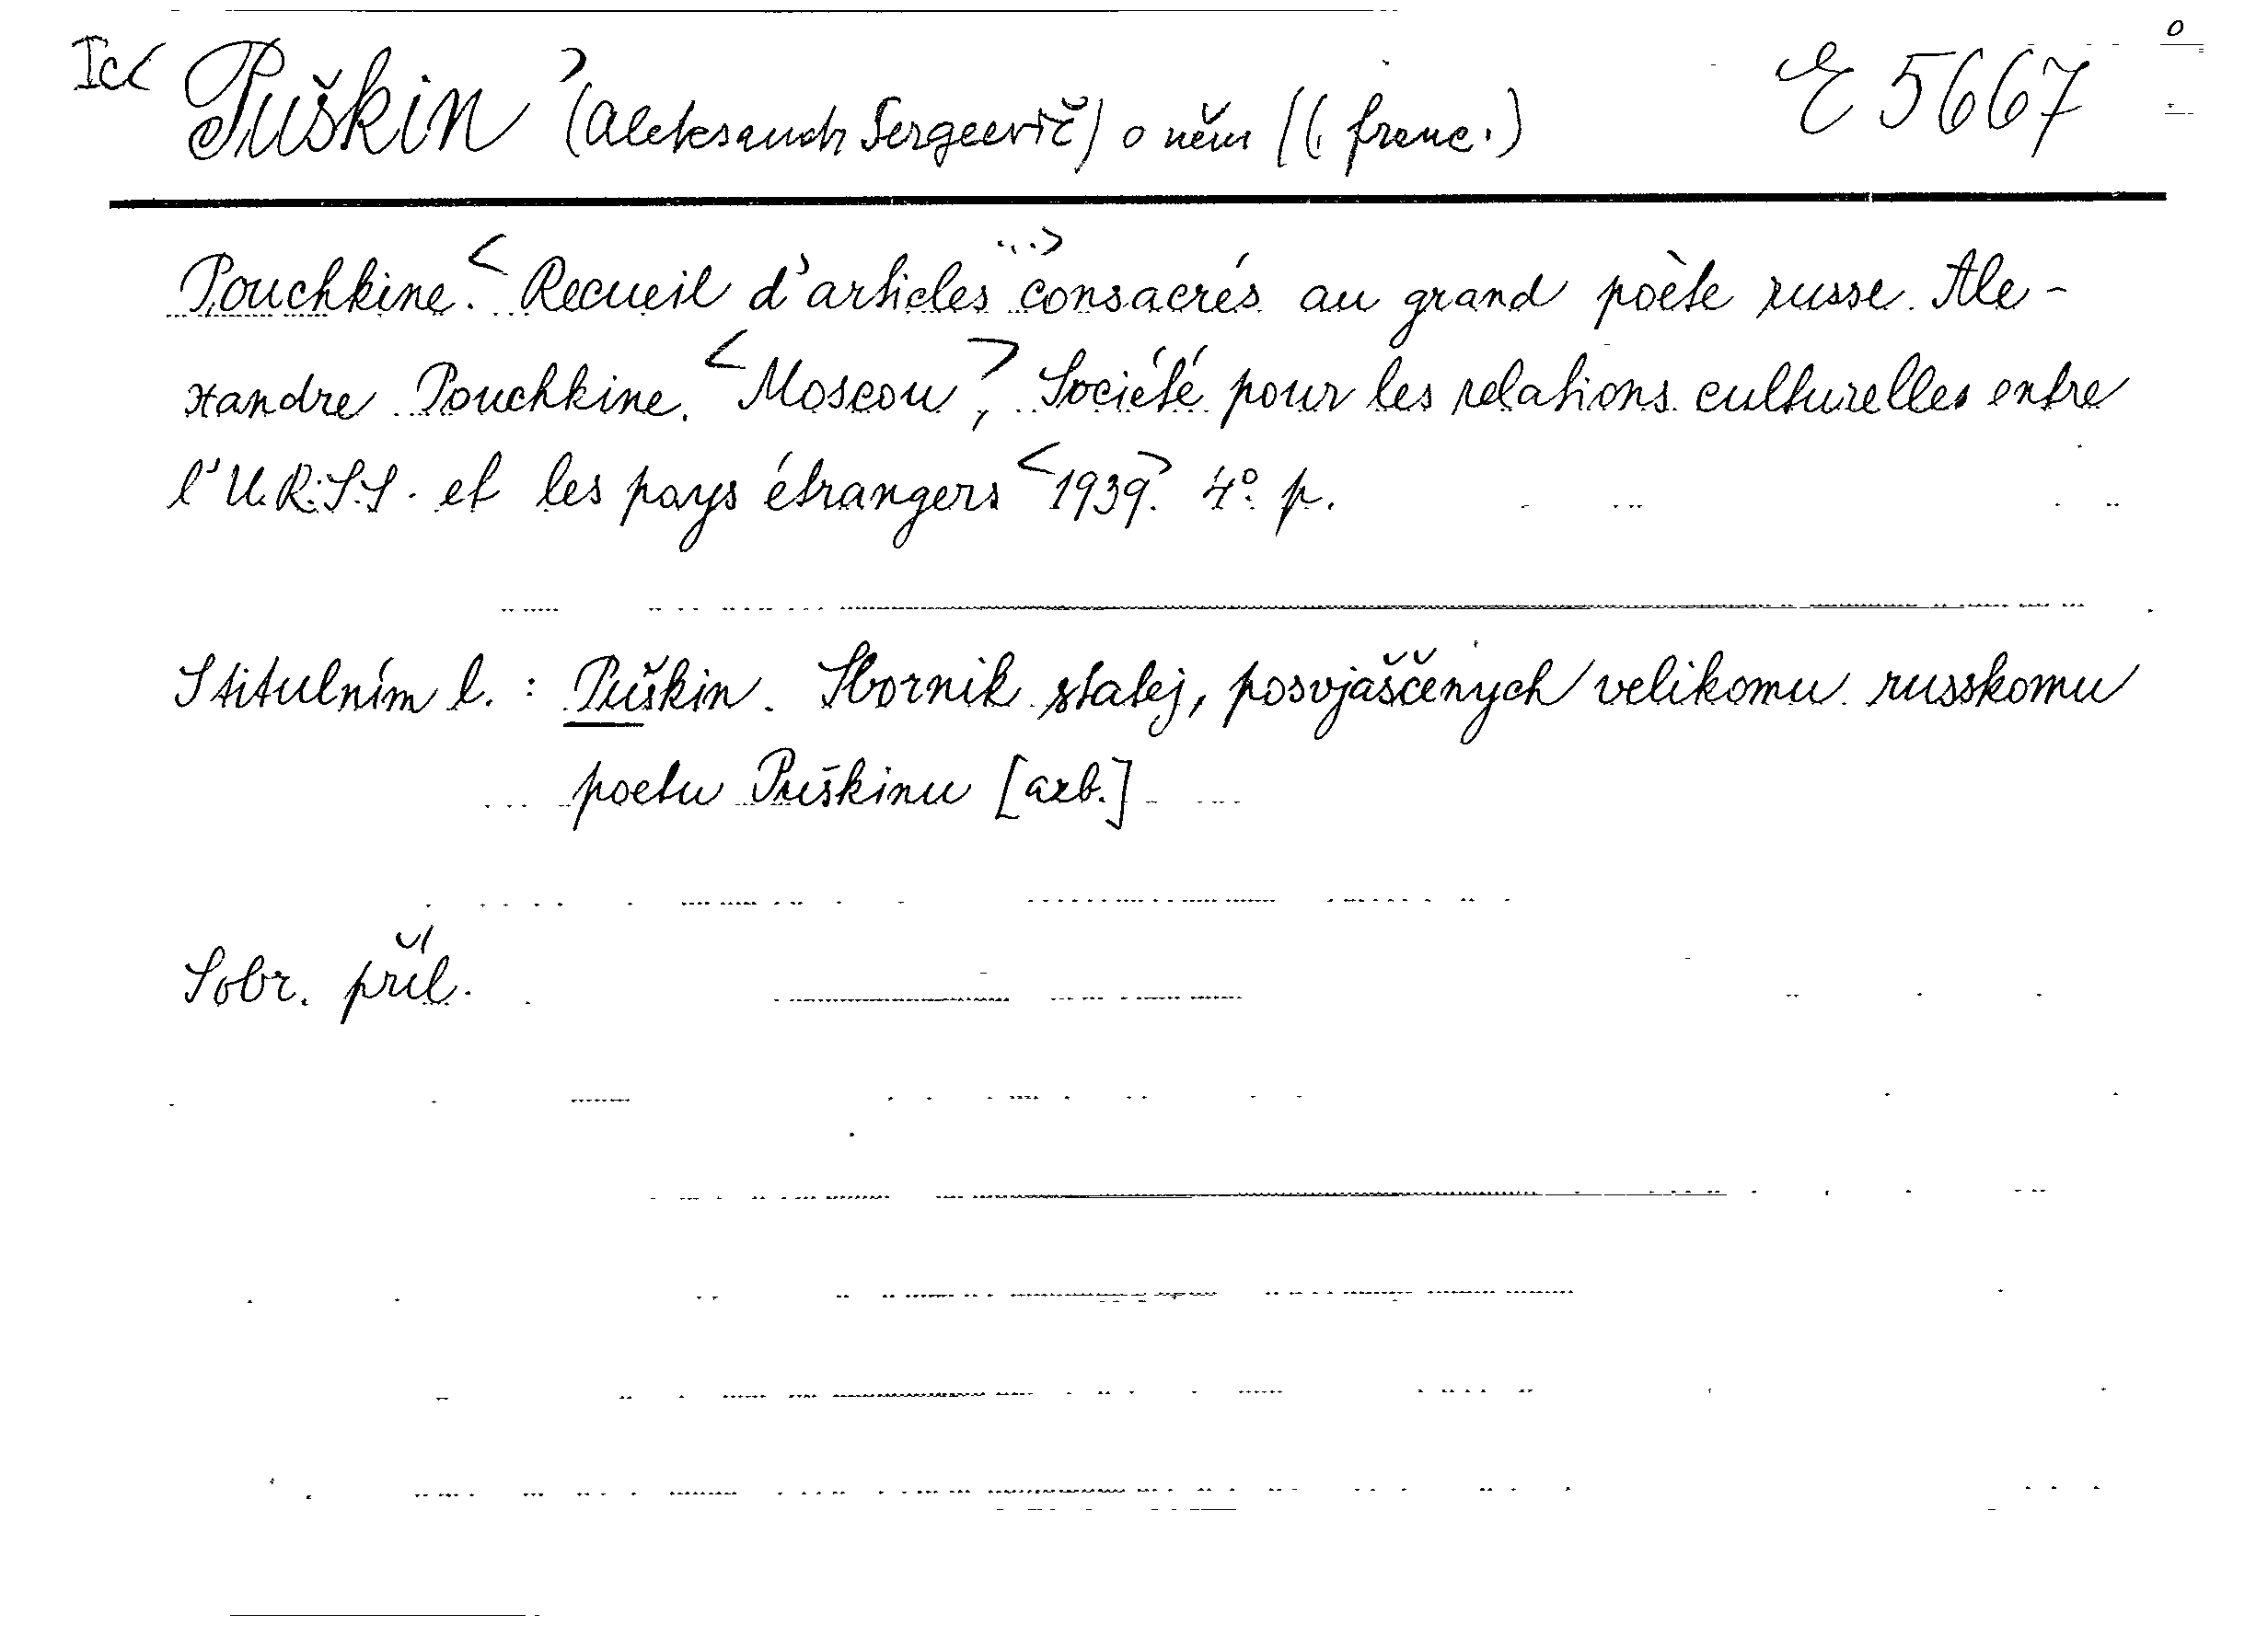 Ic< Puškin > (Aleksandr Sergeevič) o něm ((franc.) E 5667
Pouchkine. < Recueil d'articles ...> consacrés au grand poète russe Ale-
xandre Pouchkine. < Moscou >, Société pour les relations culturelles entre
l'U.R.S.S. et les pays étrangers < 1939 >. 4°. p.
S titulním l. : Puškin. Sbornik statej, posvjaščenych velikomu russkomu
poetu Puškinu [azb.]
Sobr. příl.